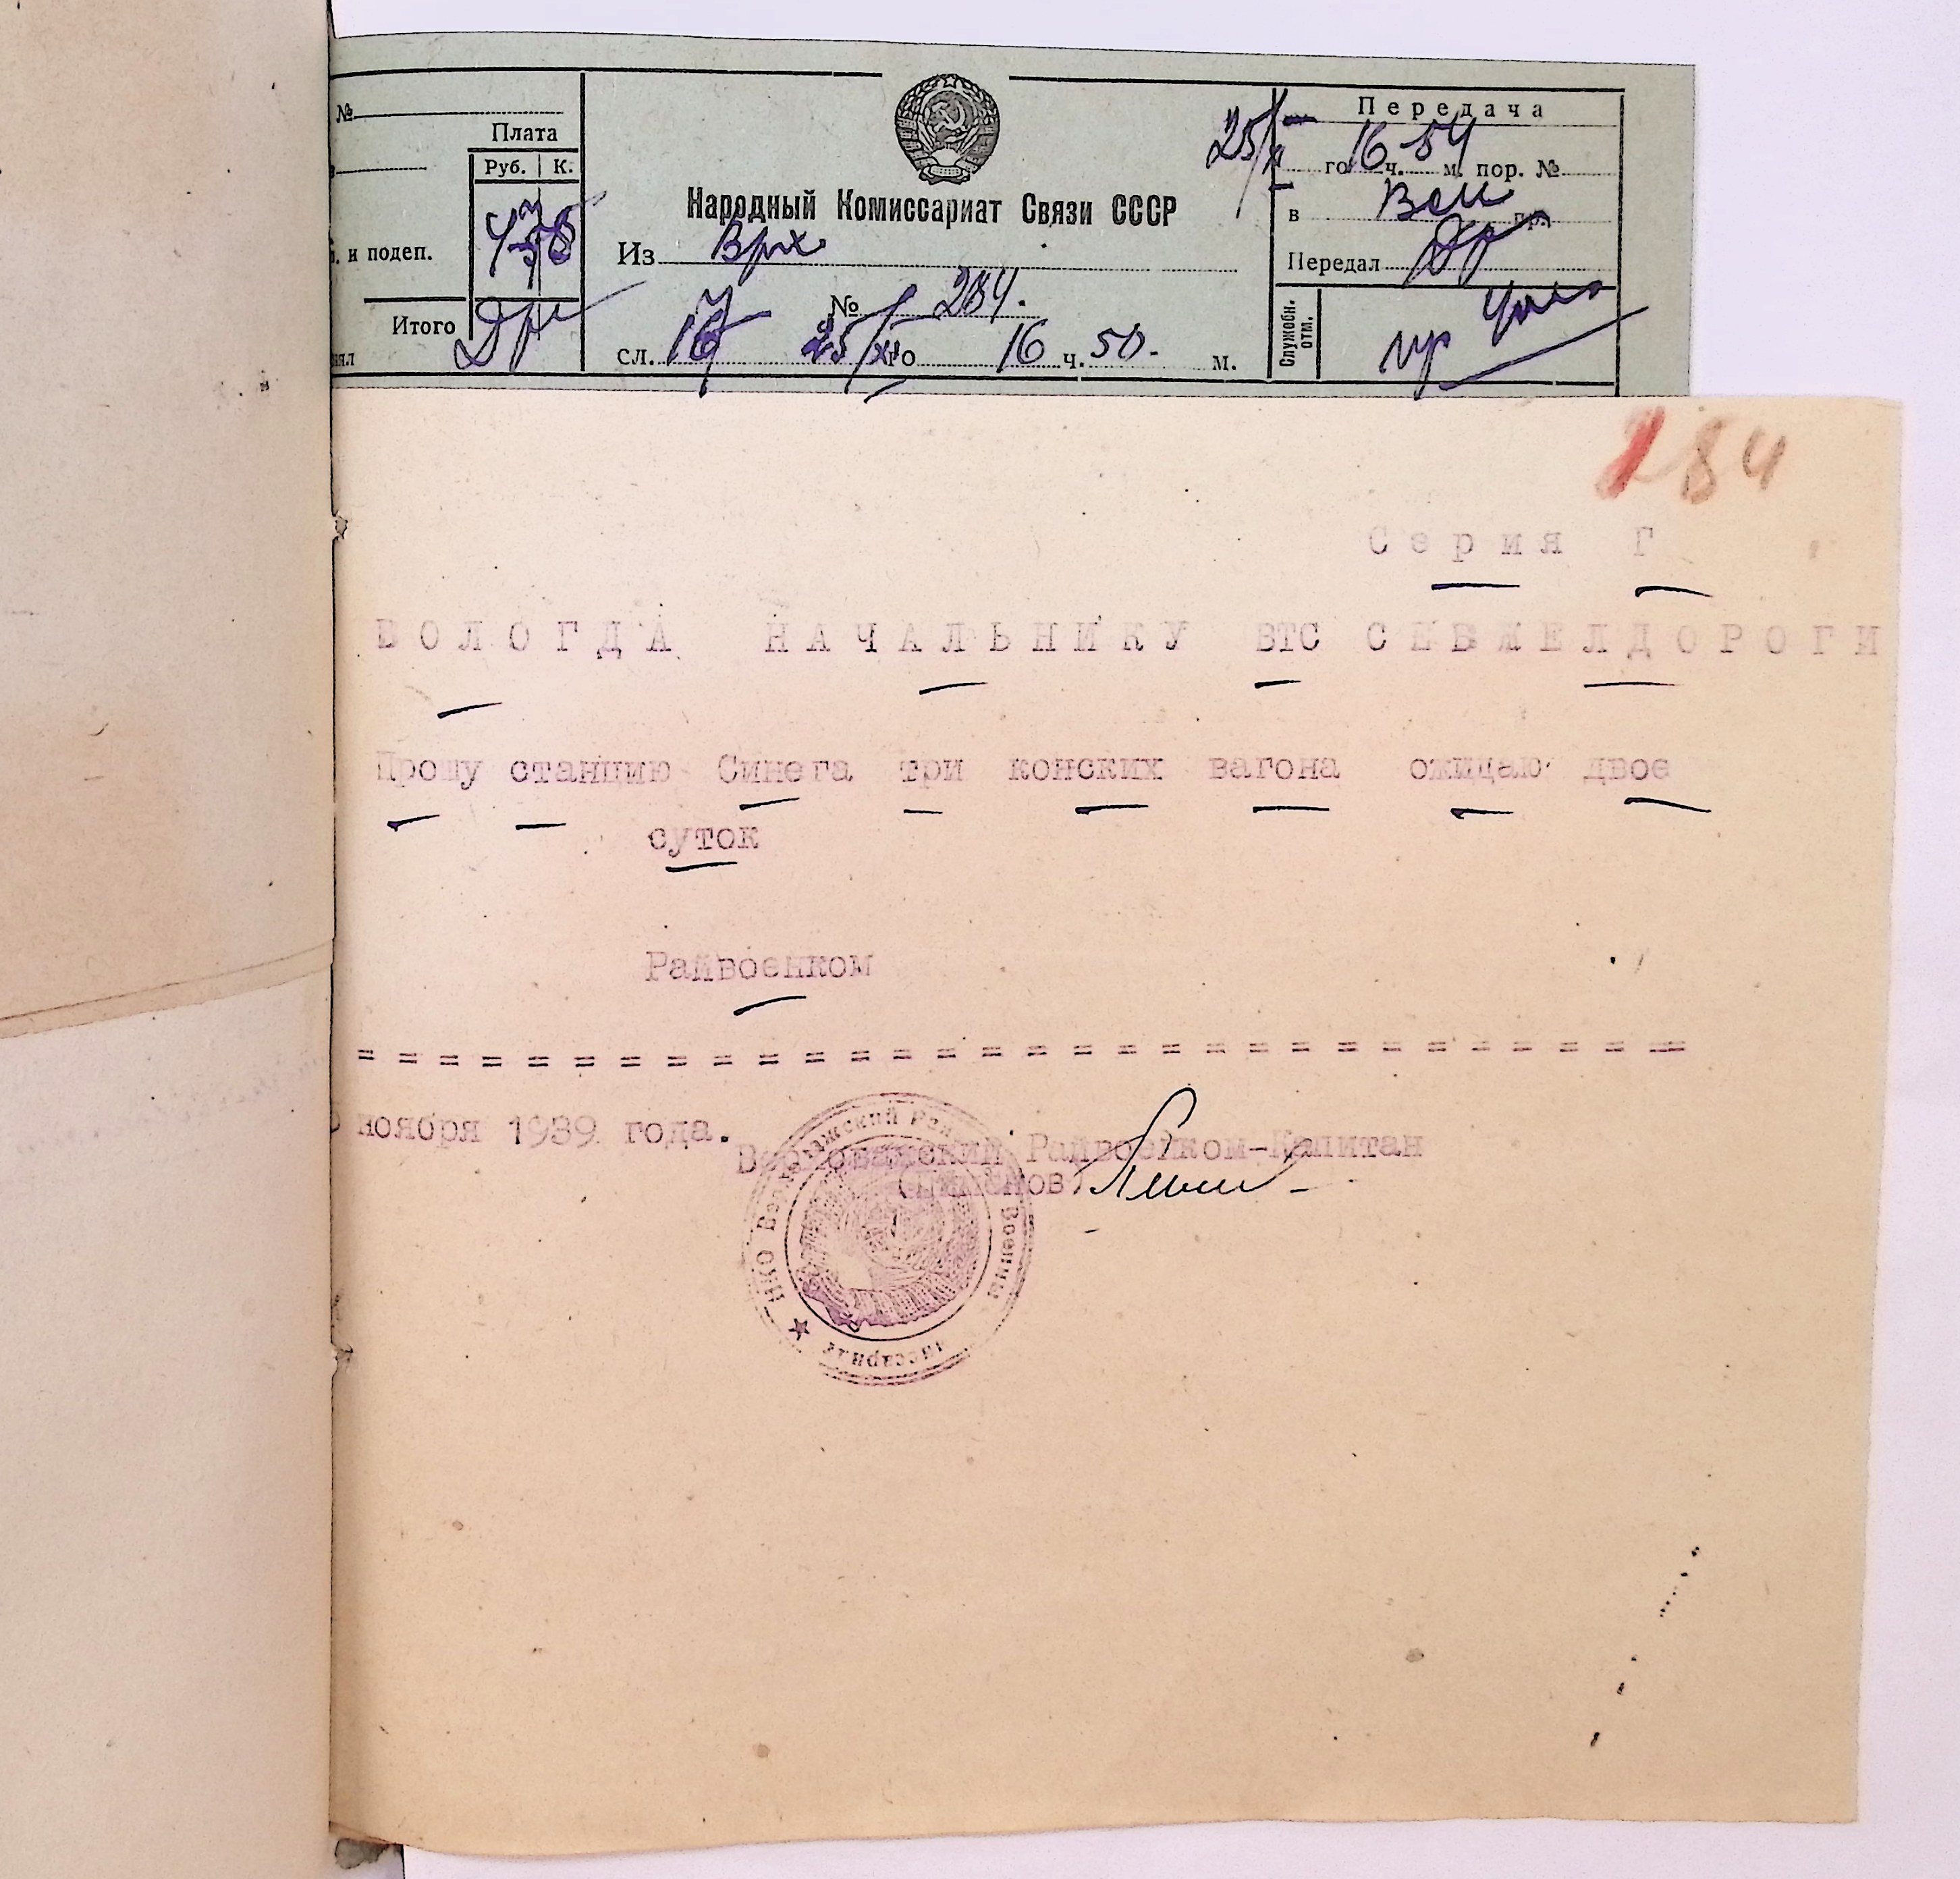 №
Плата
Руб. К.
и подеп.
Итого
Народный Комиссариат Связи СССР
Из Врх
№ 284.
сл. 25/XI го 16 ч. 50. м.
Передача
25/XI го 16 ч. 54 м. пор. №
в пр.
Передал
Служебн. отм.
184
Серия Г
ВОЛОГДА НАЧАЛЬНИКУ ВТС СЕВЖЕЛДОРОГИ
Прошу станцию Синега три конских вагона ожидаю двое
суток
Райвоенком
= = = = = = = = = = = = = = = = = = = = = = = = = = = = = =
ноября 1939 года.
Верховажский Райвоенком-Капитан
НКО Верховажский Рай Военный